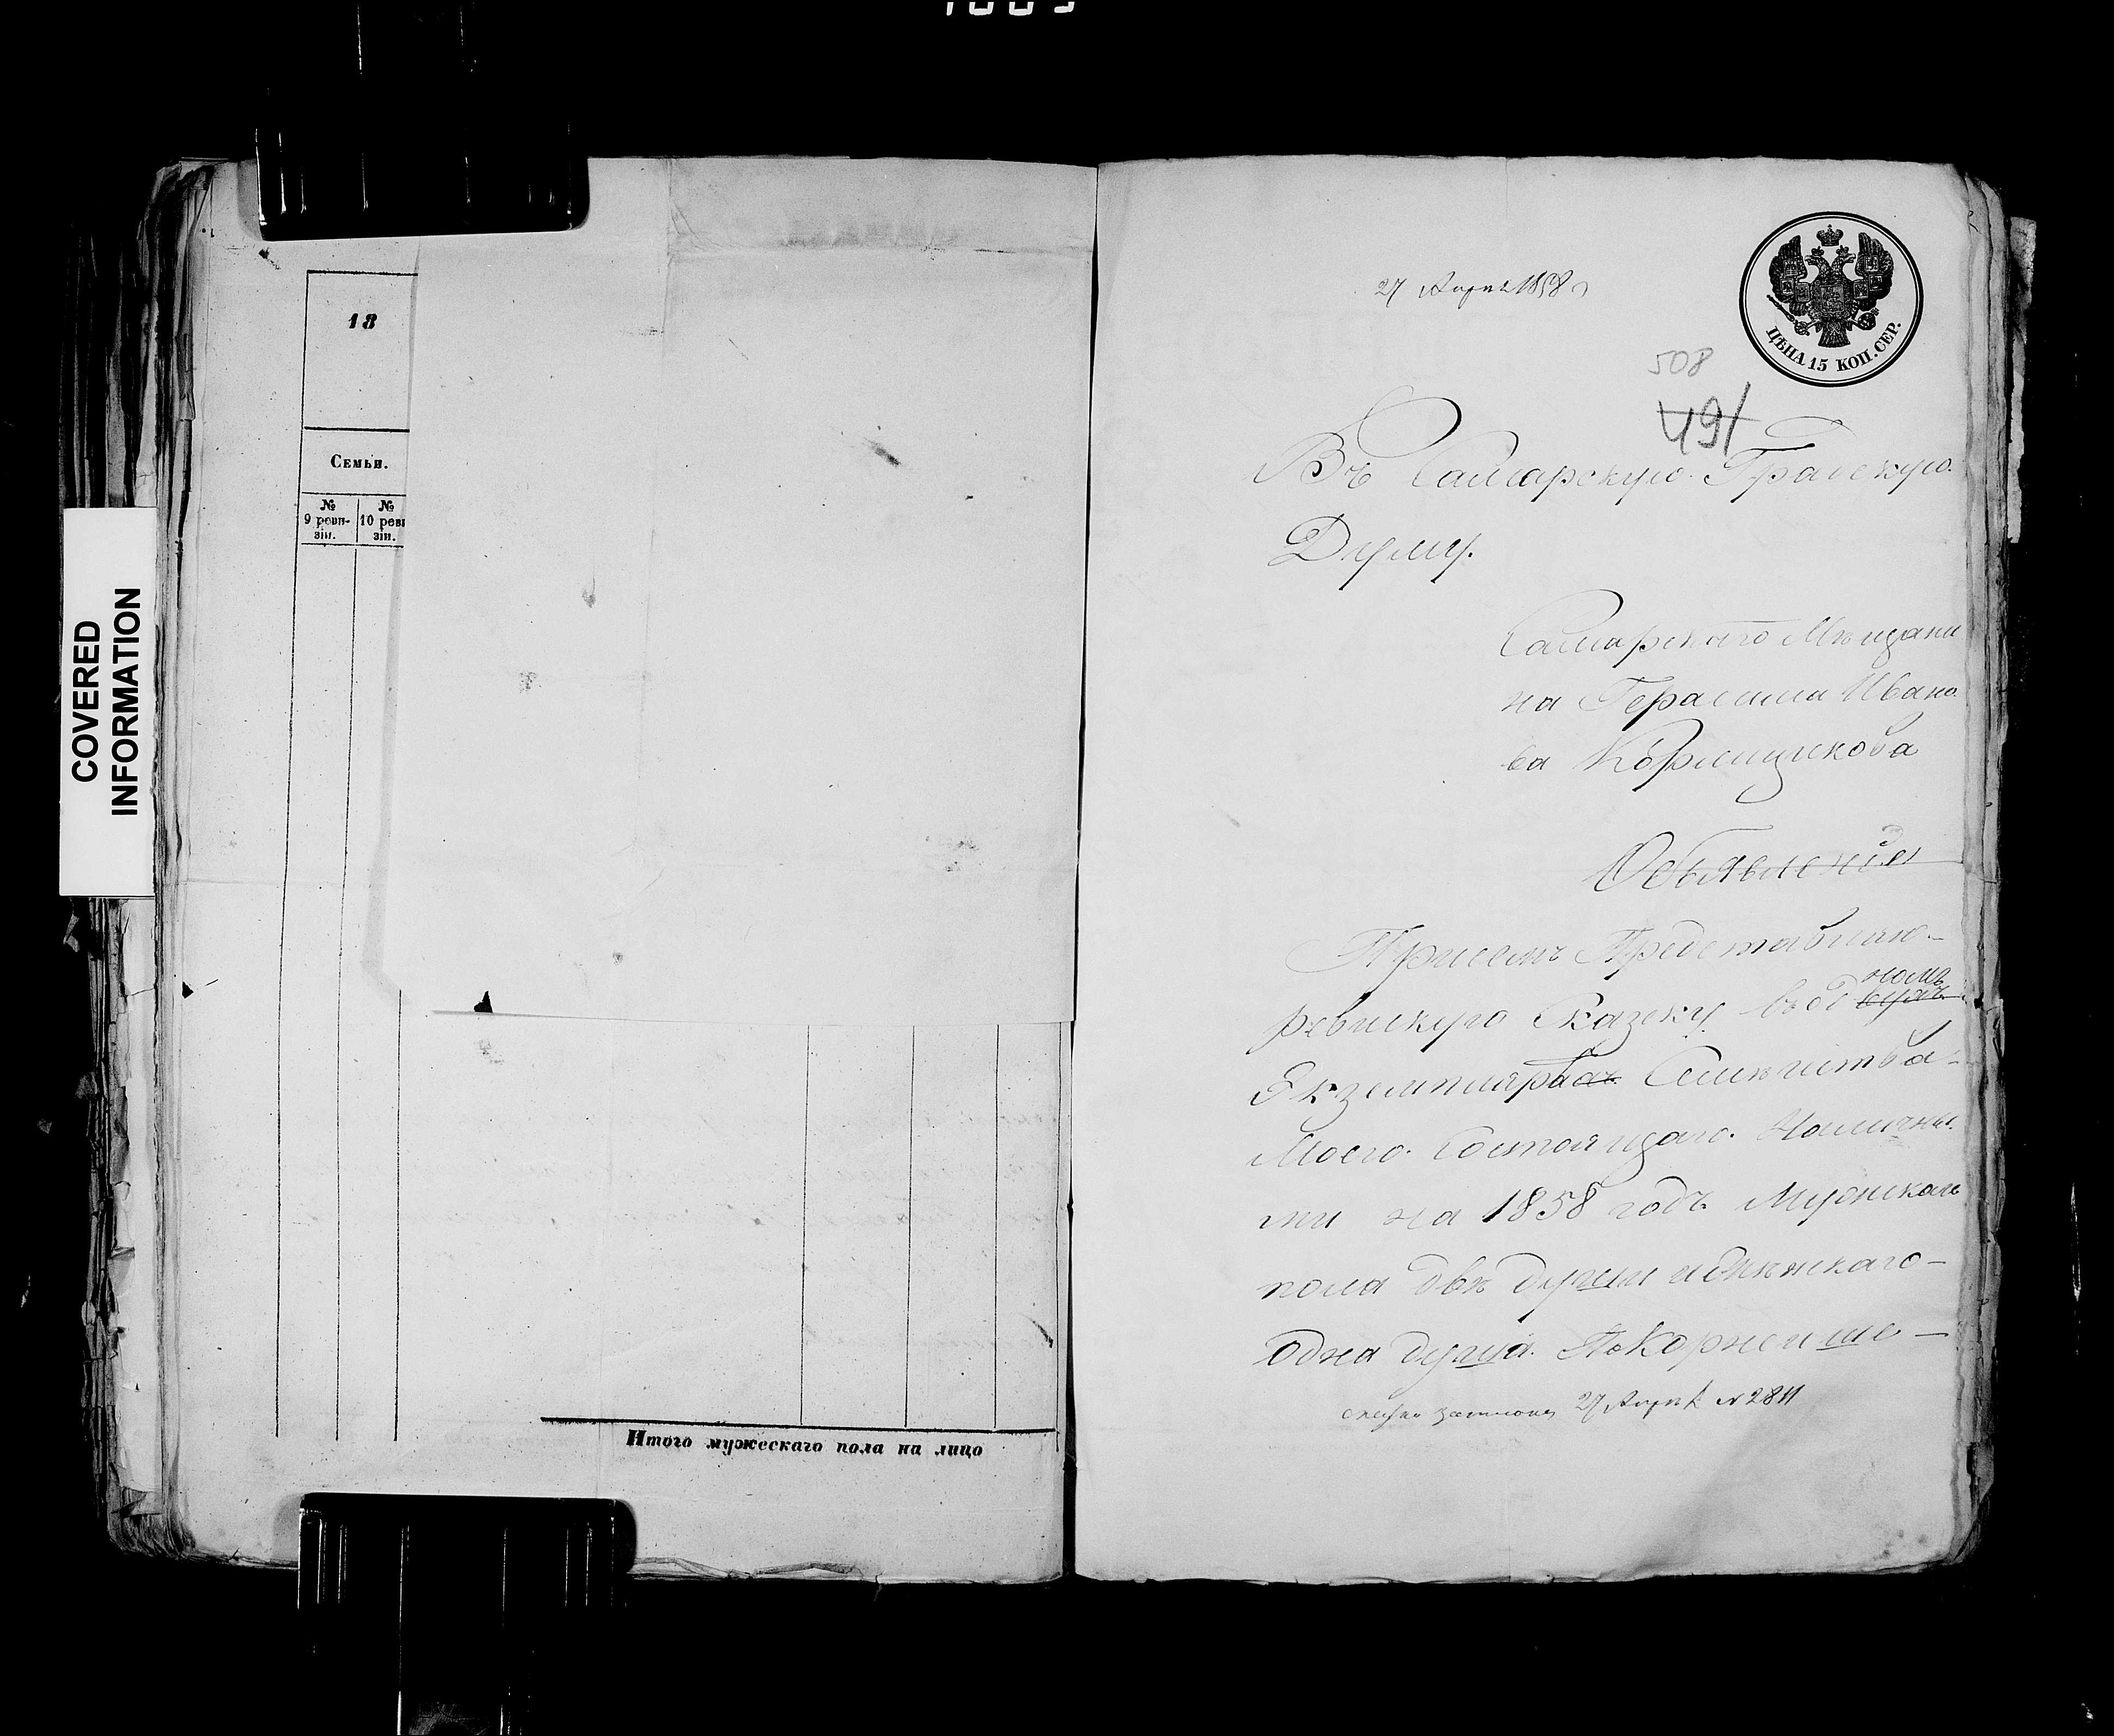 COVERED
INFORMATION
18
Семьи.
№ №
9 реви- 10 реви
зіи. зіи.
Итого мужескаго пола на лицо
27 Апреля 1858
ЦѢНА 15 КОП. СЕР.
508
491
Въ Самарскую Градскую
Думу.
Самарскаго Мѣщани
на Герасима Ивано
ва Кормщикова
Объявленіе
При семъ Представляю
ревискую Сказску въ од номъ
Екземпляр Семѣиства
Моего Состоящаго Наличны
ми на 1858 годъ Мужскаго
пола двѣ души и женскаго
одна душа. Покорнеише
27 Апреля № 2811